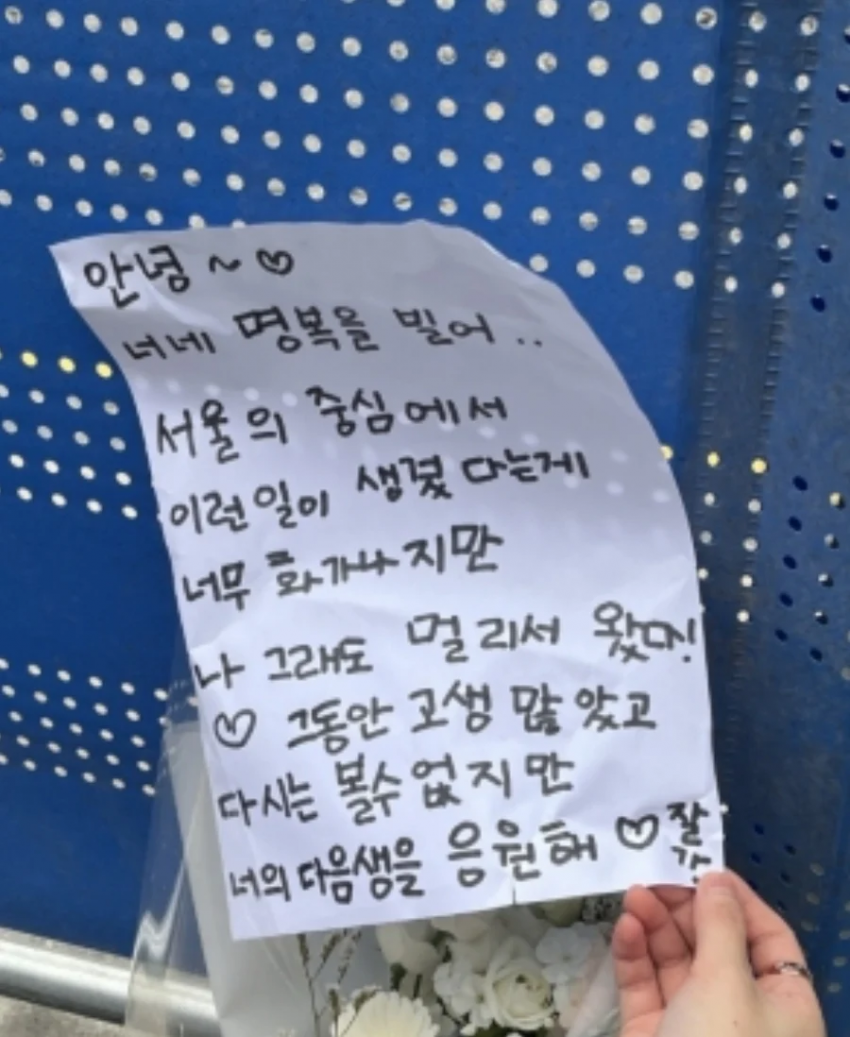 안녕 ~ ♡
너네 명복을 빌어 ..
서울의 중심에서
이런일이 생겼다는게
너무 화가나지만
나 그래도 멀리서 왔다!
♡ 그동안 고생 많았고
다시는 볼수없지만
너의 다음생을 응원해 ♡ 잘
가!